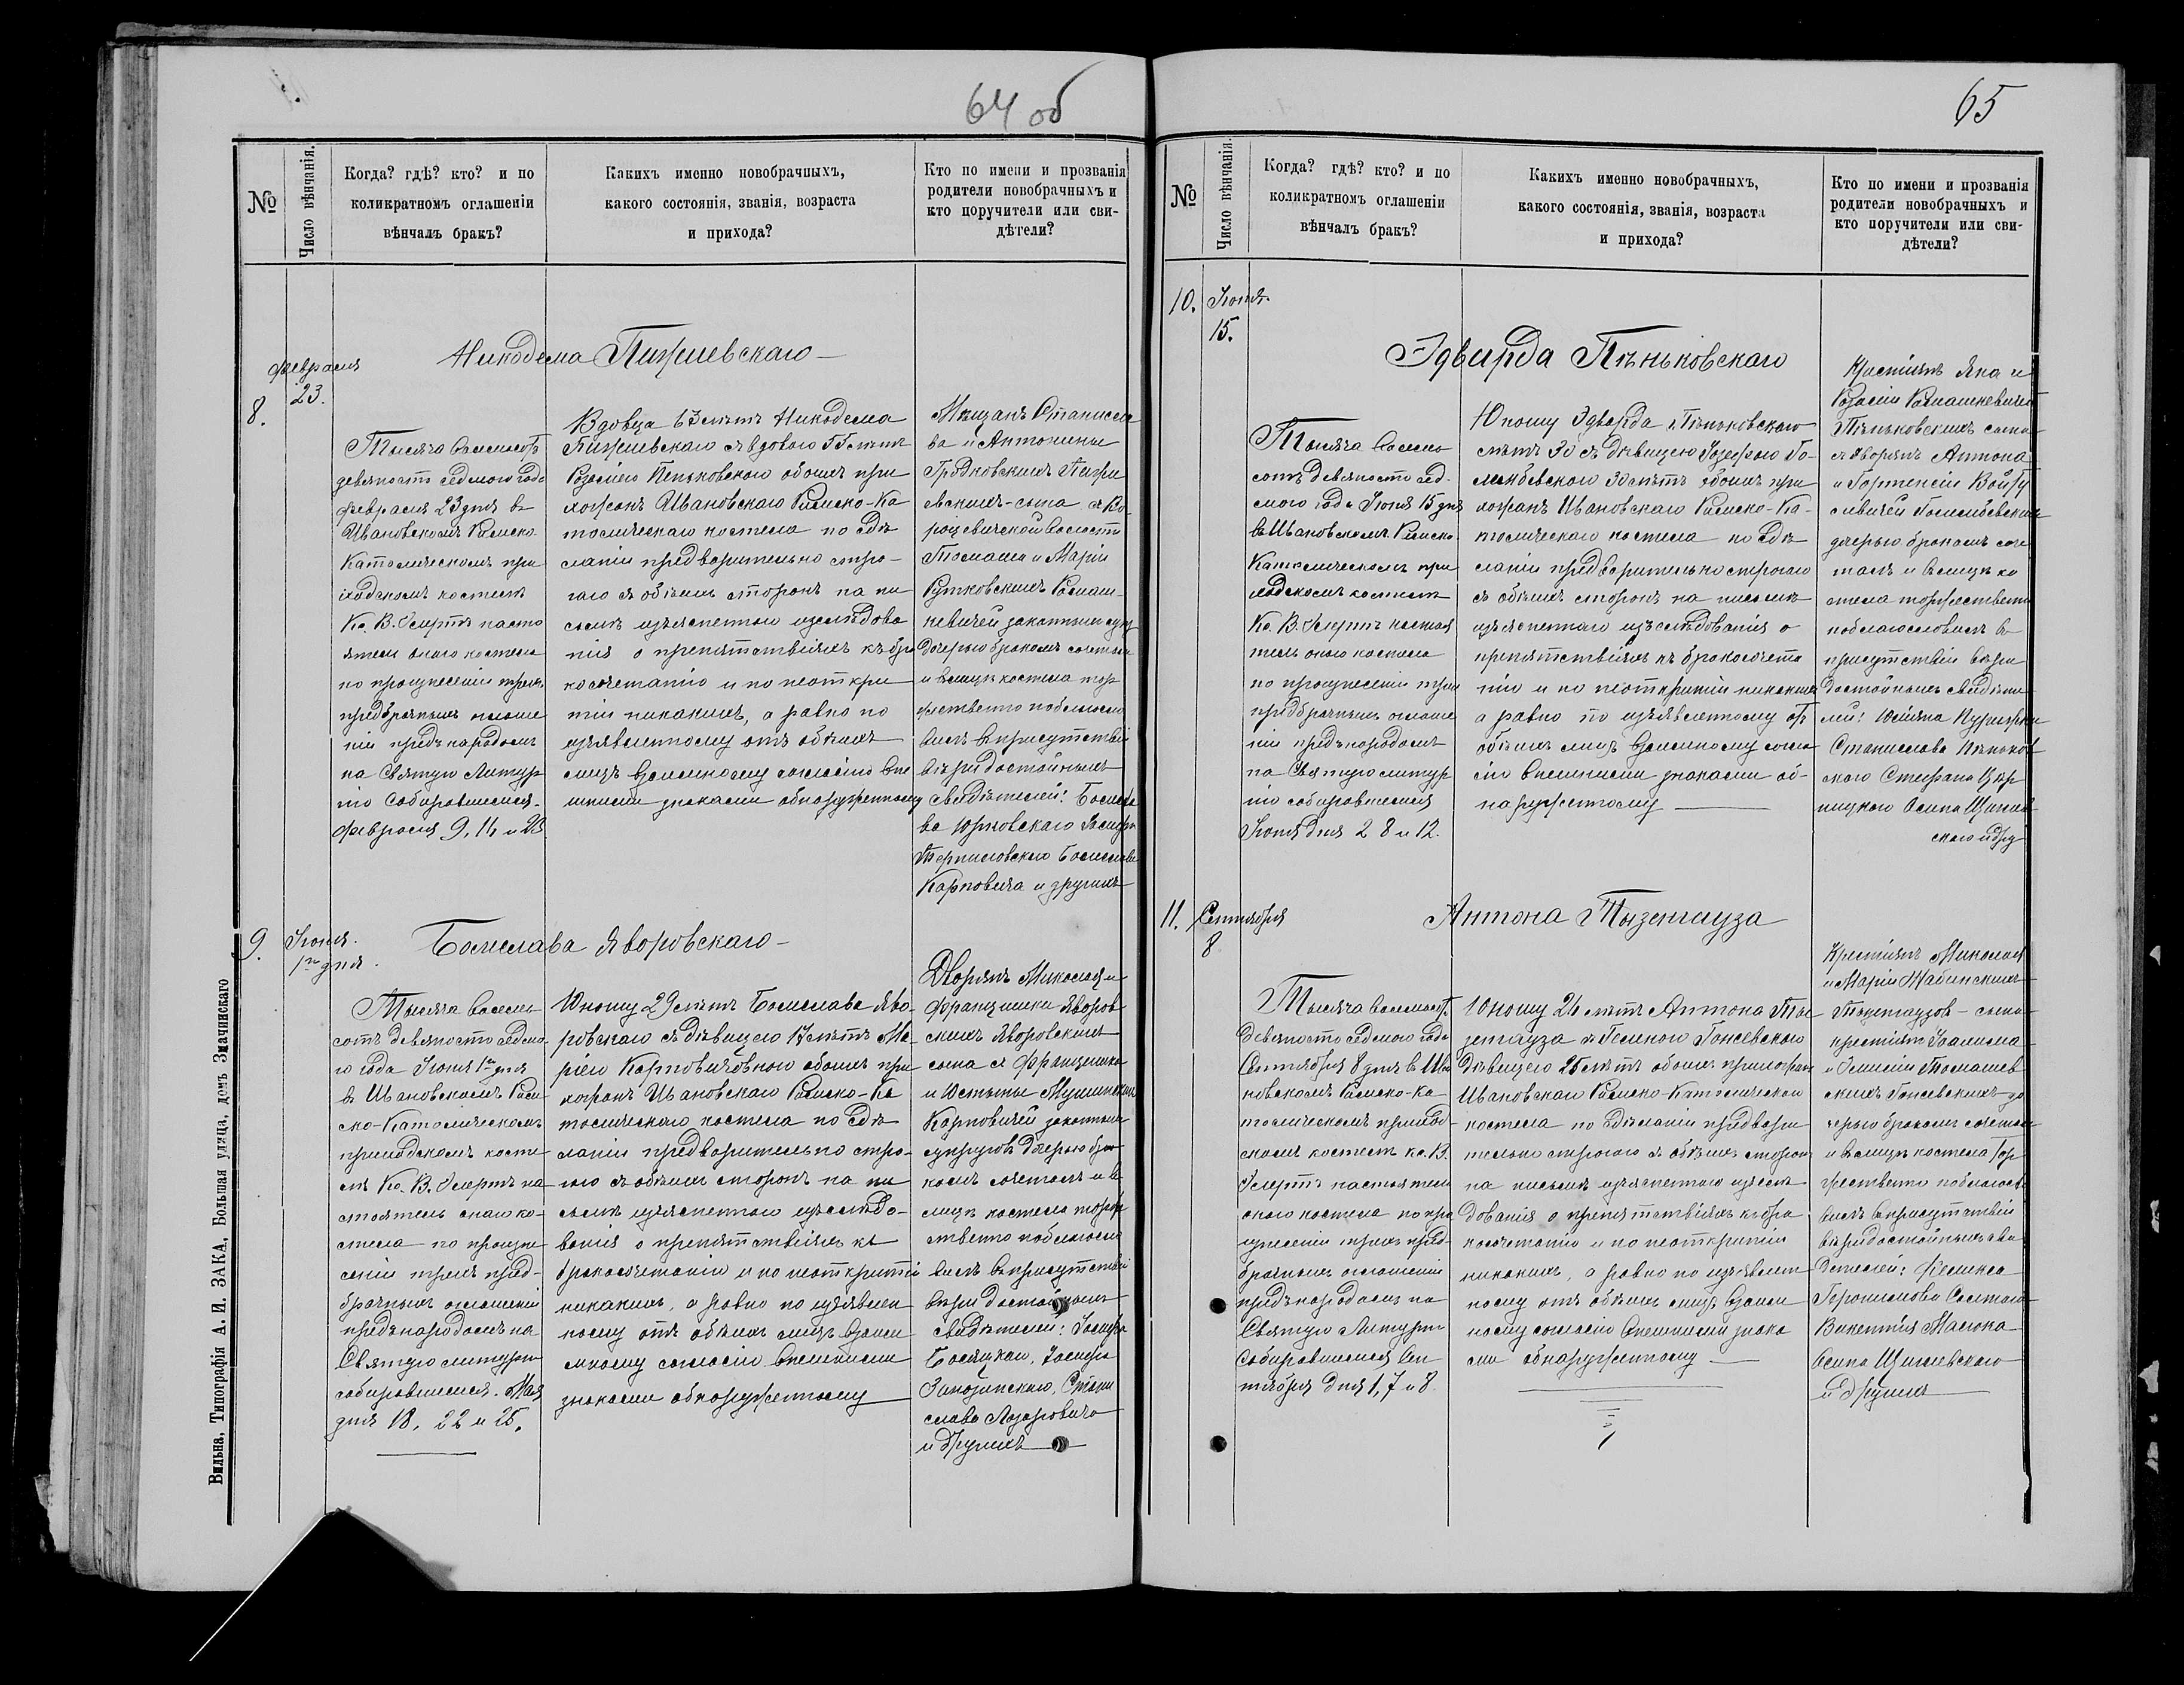 64 об
№
Число вѣнчанія.
Когда? гдѣ? кто? и по
коликратномъ оглашеніи
вѣнчалъ бракъ?
Какихъ именно новобрачныхъ,
какого состоянія, званія, возраста
и прихода?
Кто по имени и прозванія
родители новобрачныхъ и
кто поручители или сви-
дѣтели?
8.
Февраля
23.
Никодема
Тысяча восемсотъ
девяностъ седмого года
февраля 23 дня въ
Ивановскомъ Римско
Католическомъ при
ходскомъ костелѣ
Кс. В. насто
ятель оного костела
по произнесеніи трехъ
предбрачныхъ оглаше
ній предъ народомъ
на Святую Литур
гію собиравшемся
февраля 9, 16 и 23
Вдовца 63 лѣтъ Никодема
съ вдовою
обоихъ при
хожанъ Ивановскаго Римско-Ка
толическаго костела по сдѣ
ланіи предварительно стро-
гаго съ обѣихъ сторонъ на пи
сьмѣ изъясненнаго изслѣдова
нія о препятствіяхъ къ бра
косочетанію и по неоткры
тіи никакихъ, а равно по
изъявленному отъ обоихъ
лицъ взаимному согласію вне
шними знаками обнаруженному
Мѣщанъ Станисла
ва и Антонины
сына съ
Томаша и Маріи
законныхъ
дочерью бракомъ сочеталъ
и въ лицѣ костела тор
жественно благосло
вилъ въ присутствіи
вѣридостойныхъ
свидѣтелей: Болесла
ва Юрковскаго
Болеслава
Карповича и другихъ
9.
Іюня
1го дня
Болеслава Яворовскаго
Тысяча восемь
сотъ девяносто седмо
го года Іюня 1го дня
въ Ивановскомъ Рим
ско-Католическомъ
приходскомъ косте
лѣ Кс. В. на
стоятель оного ко-
стела по произне
сеніи трехъ пред-
брачныхъ оглашеній
предъ народомъ на
Святую литургію
собиравшемся Мая
дня 18, 22 и 25.
Юношу 29 лѣтъ Болеслава Яво-
ровскаго съ дѣвицею 17 лѣтъ Ма-
ріею Карповичовною обоихъ при
хожанъ Ивановскаго Римско-Ка
толическаго костела по сдѣ
ланіи предварительно стро-
гаго съ обѣихъ сторонъ на пи
сьмѣ изъясненнаго изслѣдо-
ванія о препятствіяхъ къ
бракосочетанію и по неоткрытіи
никакихъ, а равно по изъявлен
ному отъ обоихъ лицъ взаим
ному согласію внешними
знаками обнаруженному
Дворянъ Миколая и
Францишки Яворов
скихъ
сына съ Францишка
и Юстыны
Карповичей законныхъ
супруговъ дочерью бра
комъ сочеталъ и въ
лицѣ костела торже
ственно поблагосло
вилъ въ присутствіи
вѣридостойныхъ
свидѣтелей: Іосифа
Іосифа
Стани
слава Лазаровича
и другихъ
Вильна, Типографія А. И. ЗАКА, Большая улица, домъ Значинскаго
65
№
Число вѣнчанія.
Когда? гдѣ? кто? и по
коликратномъ оглашеніи
вѣнчалъ бракъ?
Какихъ именно новобрачныхъ,
какого состоянія, званія, возраста
и прихода?
Кто по имени и прозванія
родители новобрачныхъ и
кто поручители или сви-
дѣтели?
10.
Іюня
15.
Эдварда Пѣньковскаго
Тысяча восемь
сотъ девяносто сед
мого года Іюня 15 дня
въ Ивановскомъ Римско
Католическомъ при
ходскомъ костелѣ
Кс. В. настоя
тель оного костела
по произнесеніи трехъ
предбрачныхъ оглаше
ній предъ народомъ
на Святую литур
гію собиравшемся
Іюня дня 2 8 и 12.
Юношу Эдварда Пѣньковскаго
лѣтъ 30 съ дѣвицею Іозефою Го-
30 лѣтъ обоихъ при
хожанъ Ивановскаго Римско-Ка-
толическаго костела по сдѣ
ланіи предварительно строгаго
съ обѣихъ сторонъ на письмѣ
изъясненнаго изъслѣдованія о
препятствіяхъ къ бракосочета
нію и по неоткрытіи никакихъ
а равно по изъявленному отъ
обоихъ лицъ взаимному согла
сію внешними знаками об-
наруженному
Крестіянъ Яна и
Розаліи
Пѣньковскихъ сына
съ дворянъ Антона
и Гортензіи
дочерью бракомъ соче
талъ и въ лицѣ ко
стела торжественно
поблагословилъ въ
присутствіи вѣри
достойныхъ свидѣте
лей:
Станислава Пѣньков
скаго Стефана
Осипа
скаго и др.
11.
Сентября
8
Антона Тызенгауза
Тысяча восемьсотъ
девяносто седмого года
Сентября 8 дня въ Ива
новскомъ Римско-Ка
толическомъ приход-
скомъ костелѣ кс. В.
настоятель
оного костела по про
изнесеніи трехъ пред-
брачныхъ оглашеній
предъ народомъ на
Святую Литургію
собиравшемся Сен
тября дня 1, 7 и 8.
Юношу 26 лѣтъ Антона Ты-
зенгауза съ Геленою Гонсевскою
дѣвицею 25 лѣтъ обоихъ прихожанъ
Ивановскаго Римско-Католическаго
костела по сдѣланіи предвари
тельно строгаго съ обѣихъ сторонъ
на письмѣ изъясненнаго изслѣ
дованія о препятствіяхъ къ бра
косочетанію и по неоткрытіи
никакихъ, а равно по изъявлен
ному отъ обоихъ лицъ взаим
ному согласію внешними знака
ми обнаруженному
Крестіянъ Миколая
и Маріи
Тызенгаузовъ сына
крестіянъ
Гонсевскихъ до
черью бракомъ сочеталъ
и въ лицѣ костела тор
жественно поблагосло
вилъ въ присутствіи
вѣридостойныхъ сви
дѣтелей: Феликса
Викентія
Осипа
и другихъ